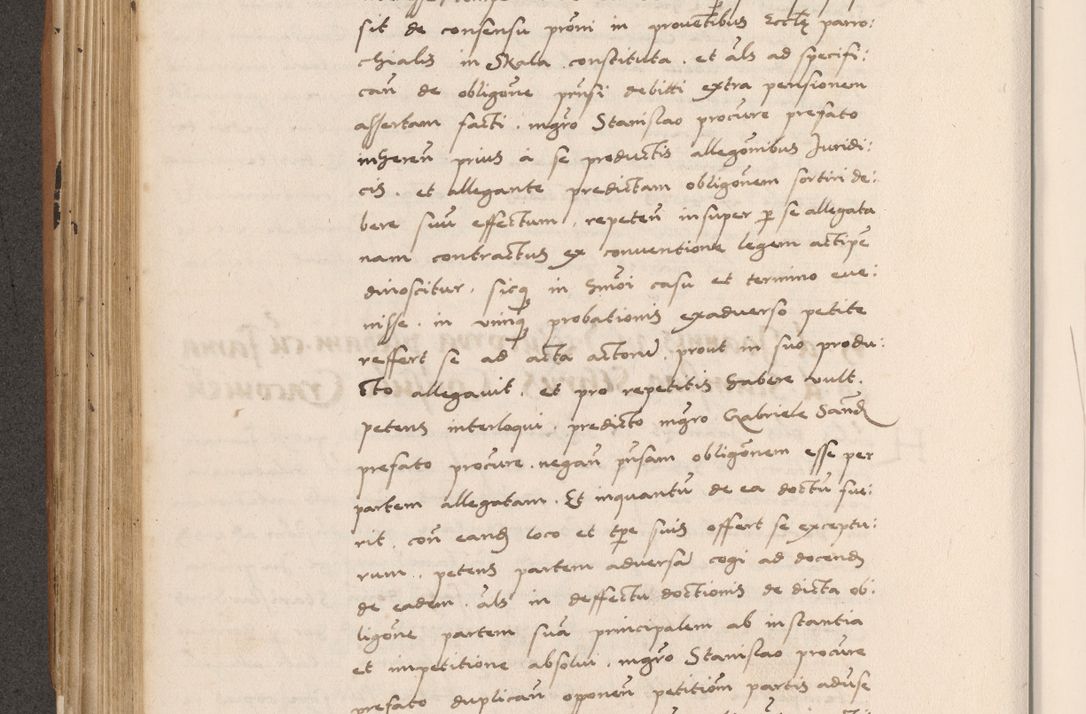 sit de consensu proni in proventibus Ecclę parro:
chialis in Skala constituta. et als ad specifi:
can de obligone prnsi debitti extra pensionem
assertam facti. mgro Stanislao procure prefato
inheren prius a se productis allegonibus Juridi:
cis. et allegante predictam obligonem sortiri de:
bere suu effectum. repeten insuper p se allegata
nam contractus ex conventione legem accipe
dinoscitur. sicq in hmoi casu et termino eve:
nisse. in vimq probationis exadverso petite
reffert se ad acta actoru. prout in suo produ:
cto allegavit. et pro repetitis habere vult.
petens interloqui. predicto mgro Gabriele Sand
prefato procure. negan pnsam obligonem esse per
partem allegatam. Et inquantu de ea doctu fue:
rit con eand loco et tpe suis offert se exceptu:
rum. petens partem adversa cogi ad docend
de eadem. als in deffectu doctionis de dicta ob:
ligone partem sua principalem ab instantia
et impetitione absolui. mgro Stanislao procure
prefato duplican opponen petition partis aduse